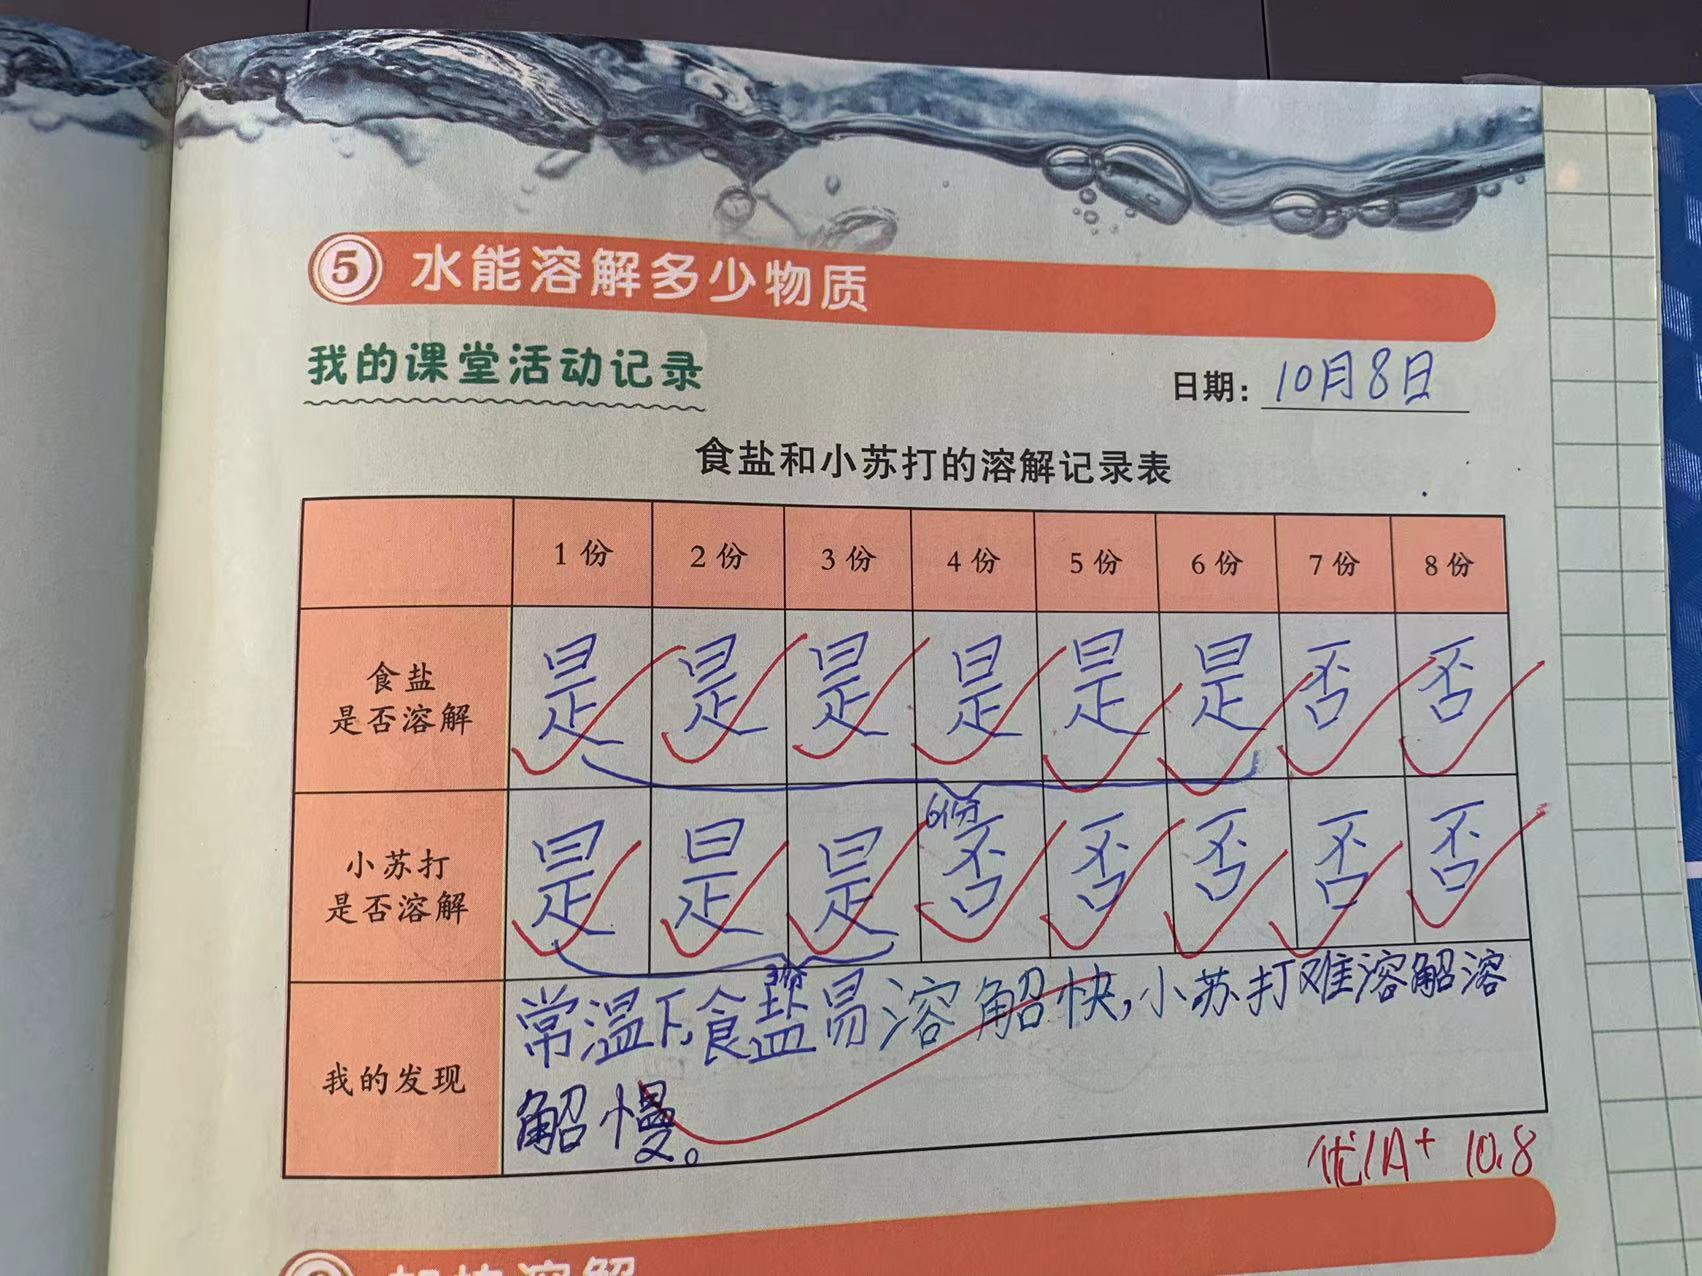 5 水能溶解多少物质
我的课堂活动记录
日期: 10月8日
食盐和小苏打的溶解记录表
1份 2份 3份 4份 5份 6份 7份 8份
食盐
是否溶解
是 是 是 是 是 是 否 否
6份
小苏打
是否溶解
是 是 是 否 否 否 否 否
3份
我的发现
常温下,食盐易溶解快,小苏打难溶解溶
解慢。
优/A+ 10.8